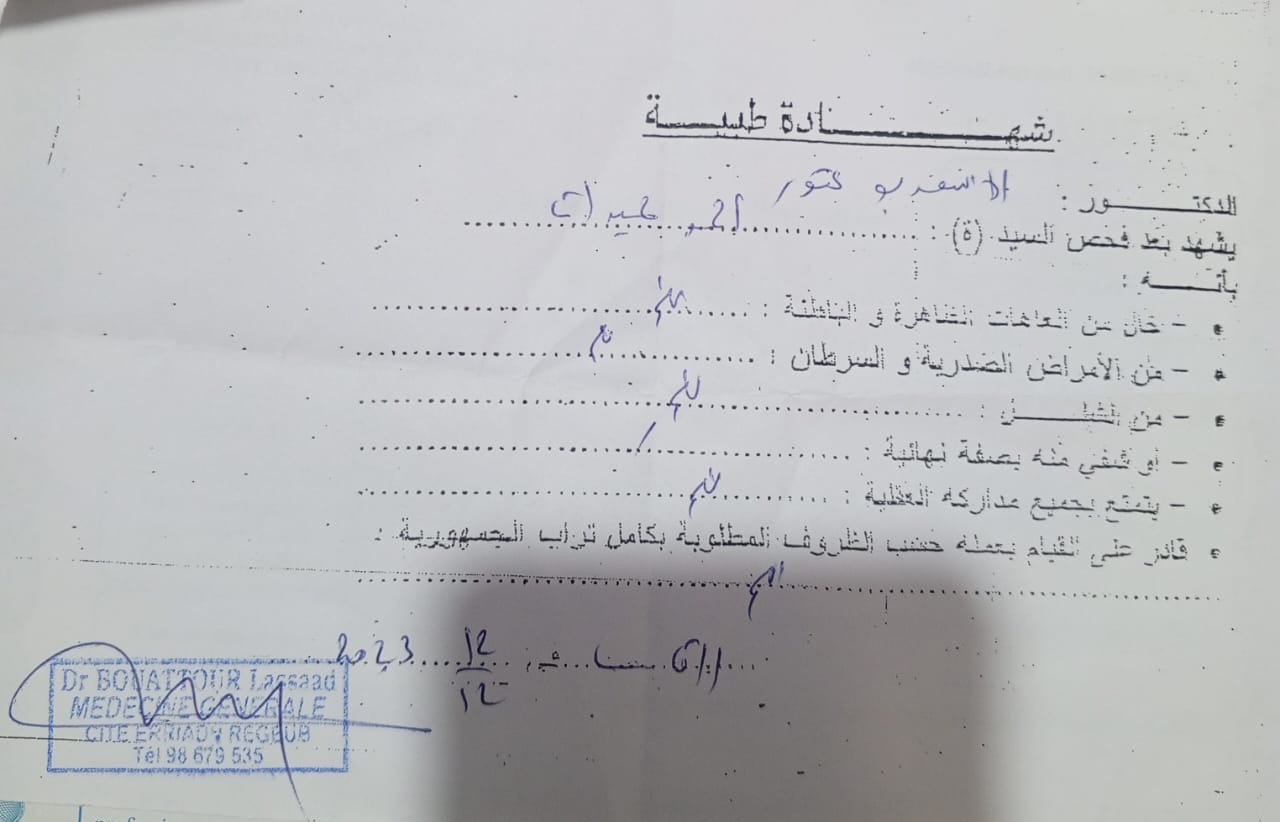 شهـــــادة طبيـــة
الدكتـــور : الأسعد بو عتور
يشهد بعد فحص السيد (ة) : أحمد
بأنـــه :
- خال من العاهات الظاهرة و الباطنة :
- من الأمراض الصدرية و السرطان :
- من الشلـــل :
- أو شفي منه بصفة نهائية : /
- يتمتع بجميع مداركه العقلية :
قادر على القيام بعمله حسب الظروف المطلوبة بكامل تراب الجمهورية :
في 12/12 2023
Dr BOUATTOUR Lassaad
MEDECINE GENERALE
CITE ERRIADH REGEUB
Tél 98 679 535